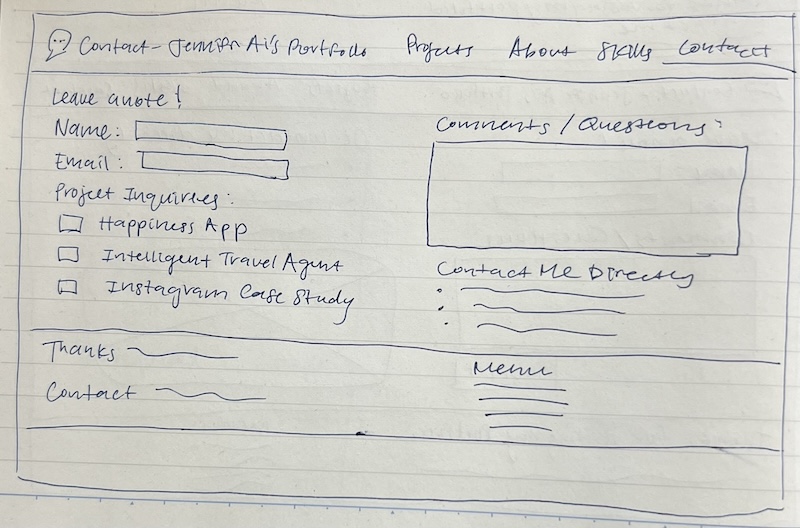 Contact - Jennifer Ai's Portfolio Projects About Skills Contact
Leave a note!
Name:
Email:
Project Inquirees:
Happiness App
Intelligent Travel Agent
Instagram Case Study
Comments / Questions:
Contact Me Directly
Thanks
Contact
Menu